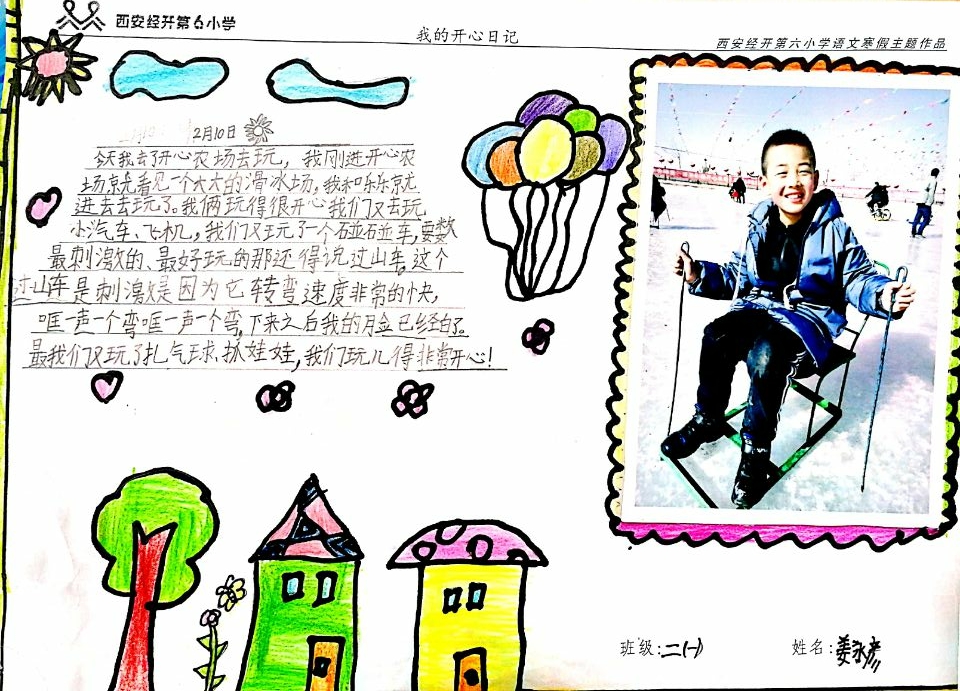 西安经开第6小学
我的开心日记
西安经开第六小学语文寒假主题作品
2月10日
今天我去了开心农场去玩，我刚进开心农
场就看见一个大大的滑冰场，我和乐乐就
进去去玩了。我俩玩得很开心我们又去玩
小汽车、飞机，我们又玩了一个碰碰车，要数
最刺激的、最好玩的那还得说过山车，这个
过山车是刺激是因为它转弯速度非常的快，
哐一声一个弯哐一声一个弯，下来之后我的脸已经白了。
最我们又玩了扎气球、抓娃娃，我们玩儿得非常开心！
班级：二(一)
姓名：姜